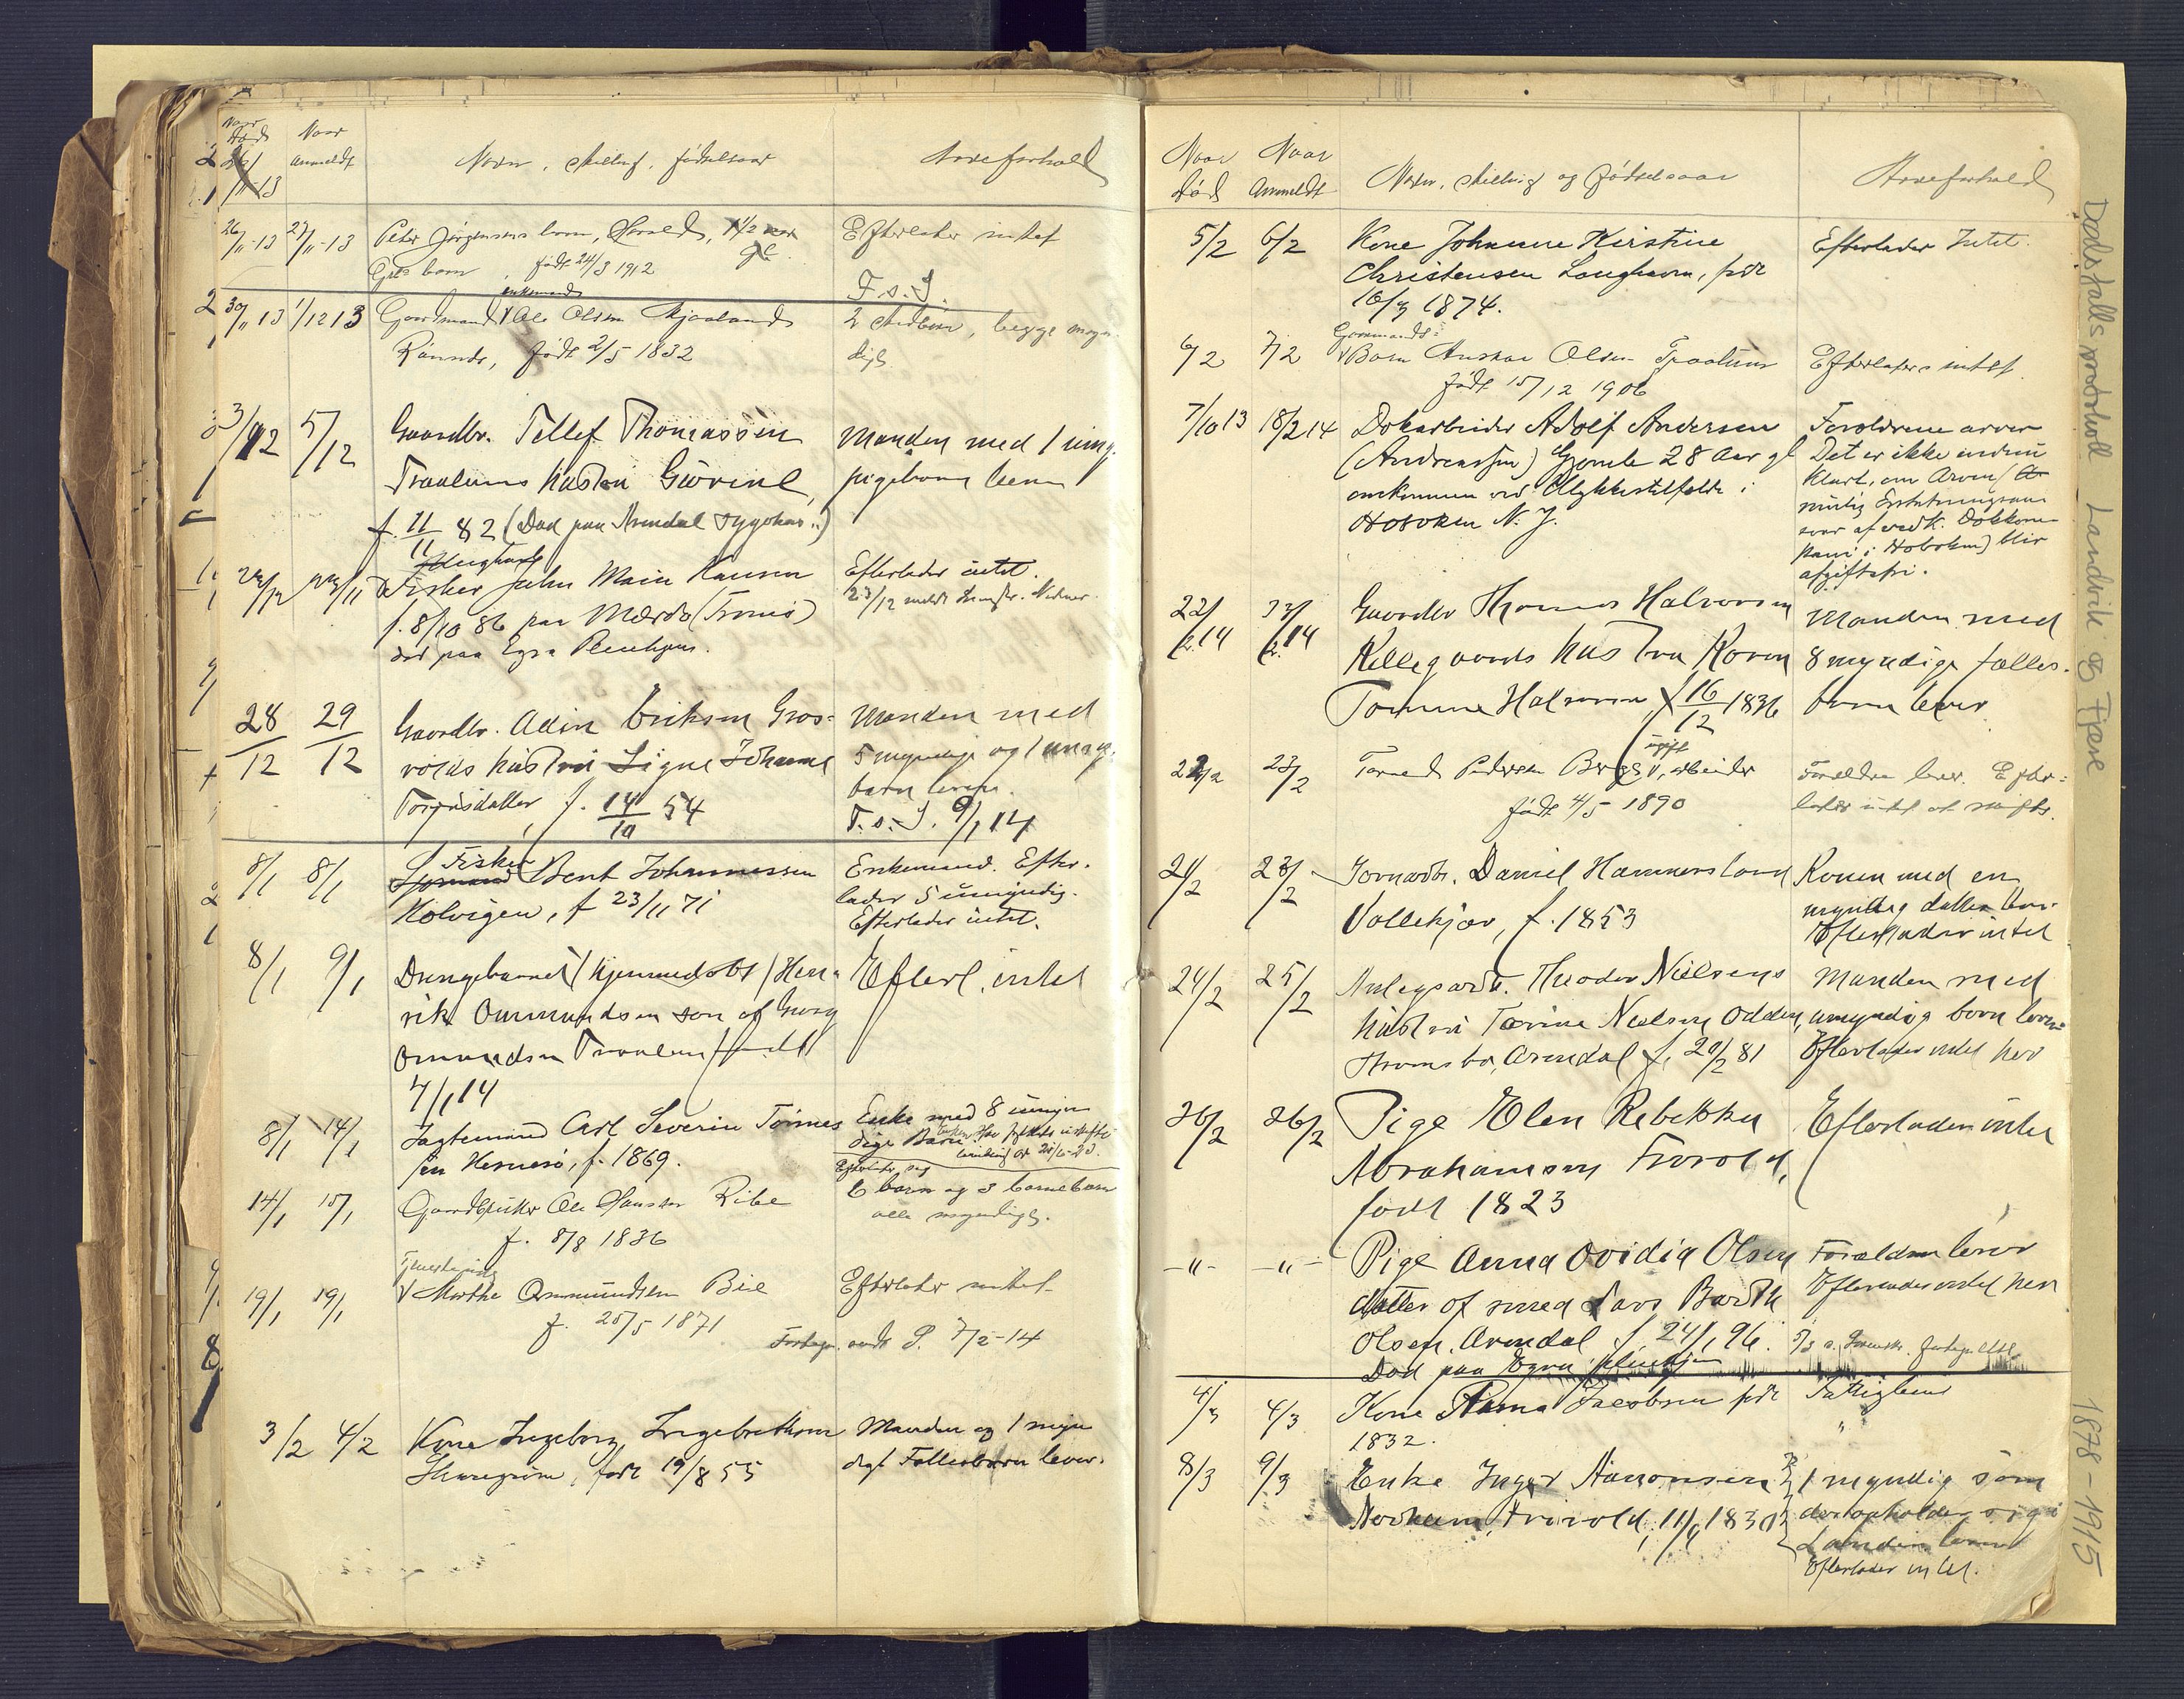 Naar Død
Naar anmeldt
Navn, stilling, fødselsaar
Arveforhold
26/11-13 27/11-13 Peter Jørgensens barn, 1 1/2 aar gl.
født 24/3 1912
Efterlader intet
F.s.J.
30/11 13 1/12 13 Gaardmand Ole Olsen
enkemand
født 2/5 1832
2 barn, begge myn-
dige
3/12 5/12 Gaardbr. Tellef Thomassen
Traalums hustru Gurine,
f. 11/11 82 (Død paa Arendal sygehus)
Manden med 1 umy.
pigebarn lever
Fisker John Main Hansen
f. 8/10 86 paa Mærdø (Tromø)
død paa Egra Pleiehjem.
Efterlader intet.
28/12 29/12 Gaardbr. Adin Eriksen Gros-
volds hustru Signe Johanne
Torjusdatter, f. 14/10 54
Manden med
5 myndige og 1 umyn.
barn lever.
F.s.J. 9/1 14
8/1 8/1 Fisker
Sjømand Bent Johannessen
Kolvigen, f 23/11 71
Enkemand. Efter-
lader 5 umyndig.
Efterlader intet.
8/1 9/1 Drengebarnet (hjemmedøbt) Hen-
rik Ommundsen søn af Georg
Omundsen Traalum født
7/1 14
Efterl. intet
8/1 14/1 Jagtemand Carl Severin Tønnes-
sen Hesnesø, f. 1869.
Enke med 8 umyn-
dige Børn
14/1 15/1 Gaardbruker Ole Hansen Ribe
f. 8/8 1836
Efterlater sig
6 barn og 3 barnebarn
alle myndige.
Tjenestepige
19/1 19/1 Marthe Ommundsen Bie
f. 25/5 1871
Efterlater intet
7/2-14
3/2 4/2 Kone Ingeborg Ingebretsen
født 19/8 55
Manden og 1 myn-
digt Fællesbarn lever.
Naar Død
Naar Anmeldt
Navn, stilling og fødselsaar
Arveforhold
5/2 6/2 Kone Johanne Kirstine
Christensen Langhavn, født
16/9 1874.
Efterlader Intet.
6/2 7/2 Barn Anskar Olsen Traalum
født 15/12 1906
Efterlater intet
7/10 13 18/2 14 Dokarbeider Adolf Andersen
(Andreassen) Gjømle 28 Aar gl
omkommen ved Ulykkestilfælde i
Hoboken N. J.
Forældrene arver
Det er ikke endnu
klart, om Arven
svar af vedk. Dokkom-
pani i Hoboken) blir
afgiftsfri.
22/2.14 23/2.14 Gaardbr Thomas Halvorsen
Killegaards hustru Karen
Tomine Halvorsen f 16/12 1836
Manden med
8 myndige fælles-
børn lever
22/2 23/2 ugift
Pedersen arbeider
født 4/5 1890
Forældre lever. Efter-
later intet at skifte.
21/2 23/2 Daniel Hammersland
Vollekjær, f. 1853
Konen med en
myndig datter lever.
Efterlader intet
24/2 25/2 Anlegsarb. Theodor Nielsens
hustru Tarine Nielsen Odden,
Strømsbo, Arendal f. 20/2 81
Manden med
umyndig barn lever
Efterlader intet her
26/2 26/2 Pige Elen Rebekka
Abrahamsen Frivold,
født 1823
Efterlader intet
-"- -"- Pige Anna Ovidia Olsen
datter af smed Lars Barth
Olsen, Arendal f. 24/1 96.
Død paa Egra pleiehjem
Forældre lever
Efterlader intet her
4/3 4/3 Kone Anna Jacobsen født
1832.
Fattiglem
"
8/3 9/3 Enke Inger Aanonsen
Frivold, 11/9 1830
1 myndig søn
der opholder sig i
London lever
Efterlader intet.
Dødsfallsprotokoll Landvik og Fjære
1878-1915